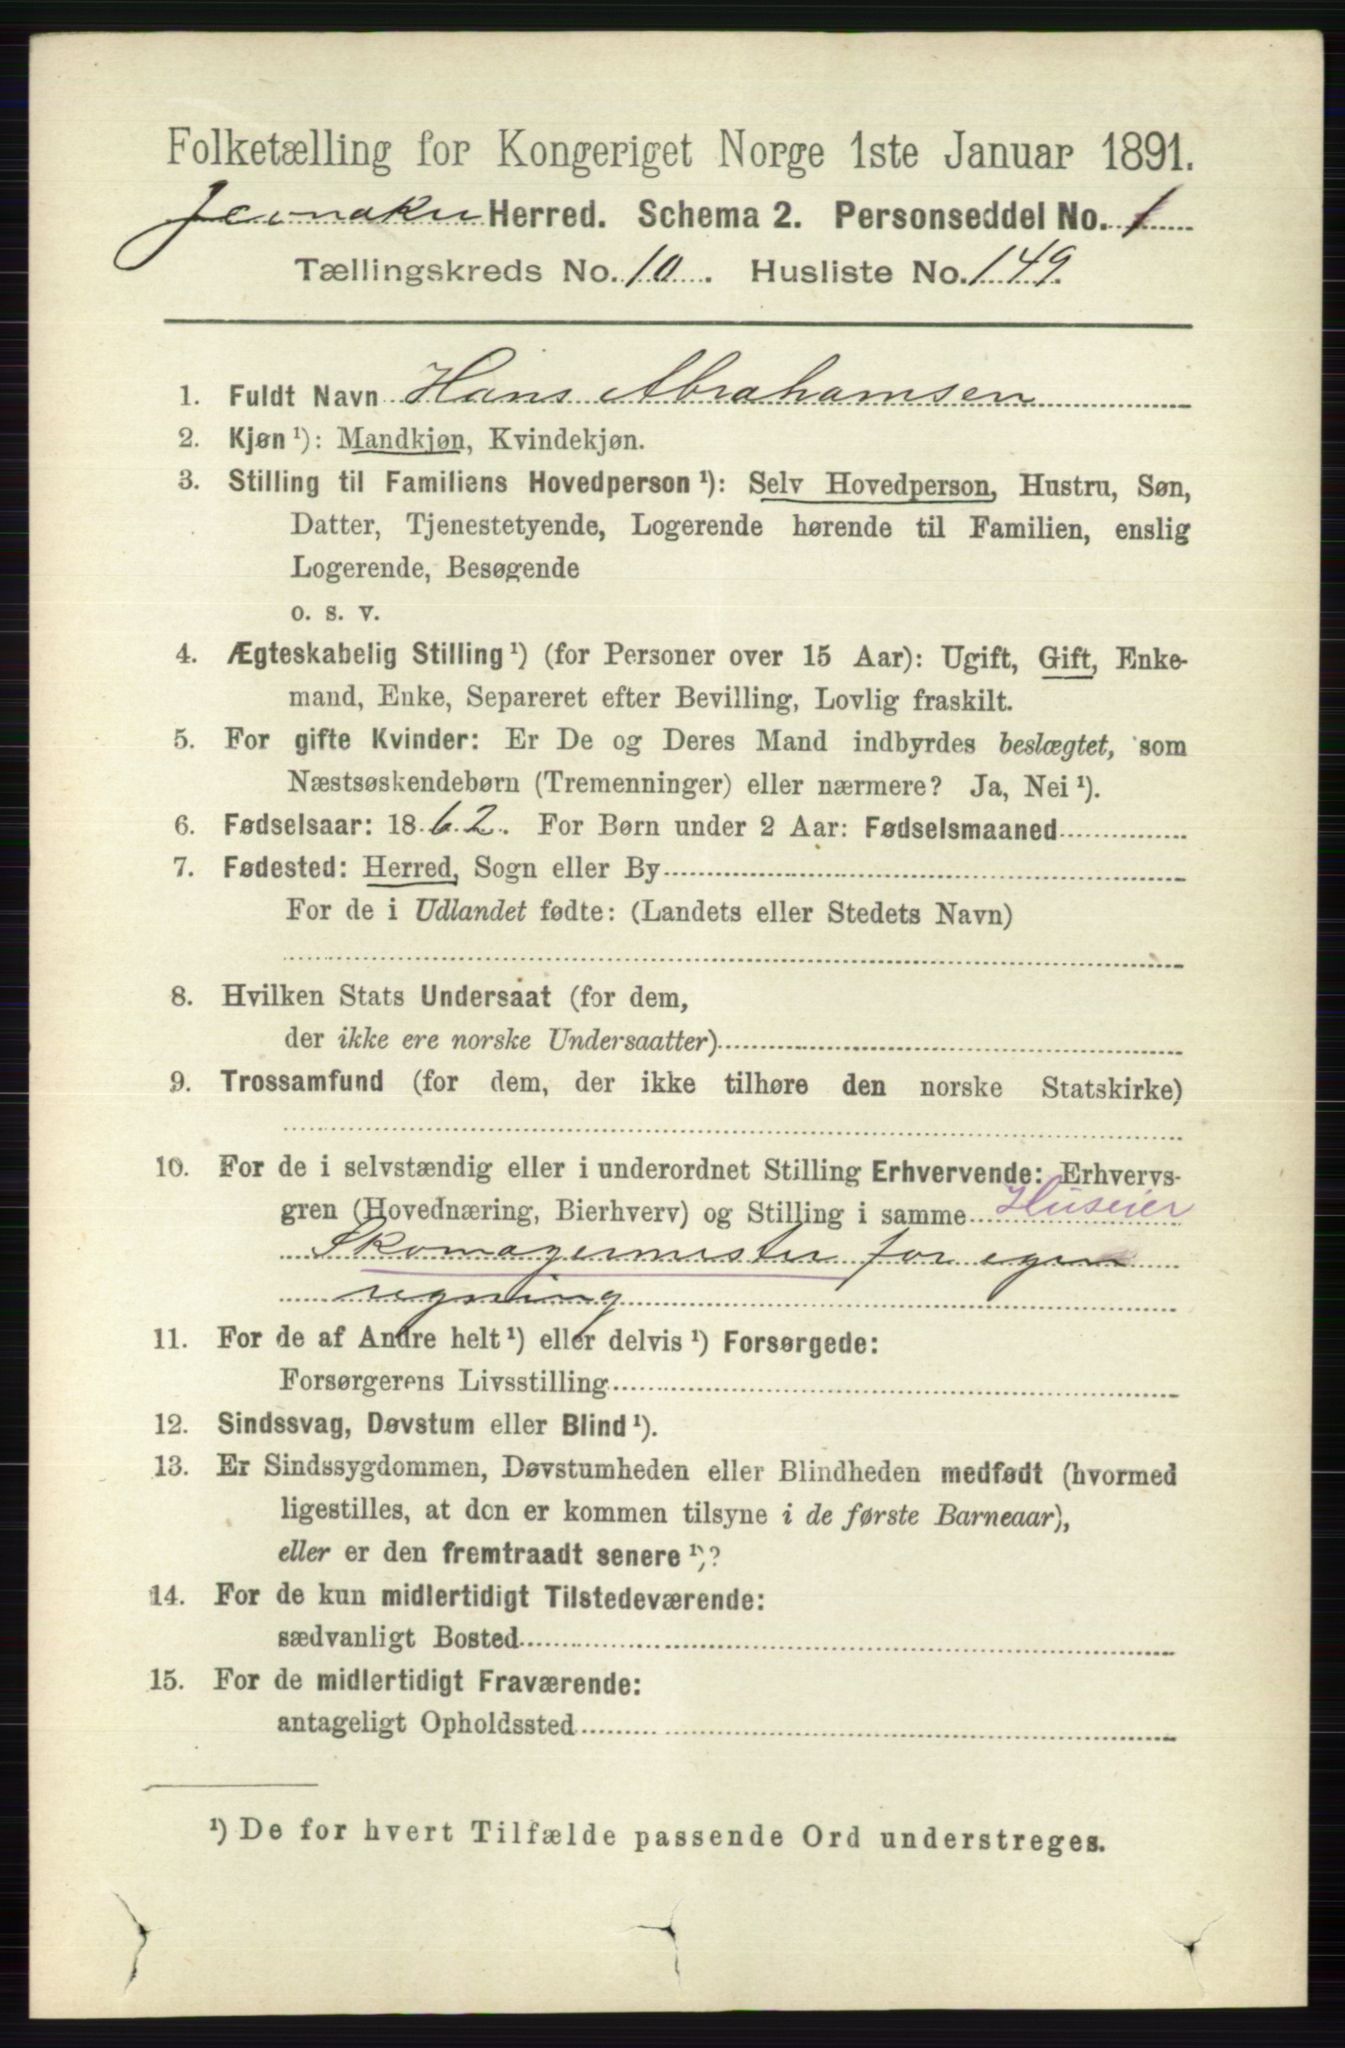 Folketælling for Kongeriget Norge 1ste Januar 1891.
Jevnaker Herred. Schema 2. Personseddel No. 1
Tællingskreds No. 10. Husliste No. 149.
1. Fuldt Navn Hans Abrahamsen
2. Kjøn ¹): Mandkjøn, Kvindekjøn.
3. Stilling til Familiens Hovedperson ¹): Selv Hovedperson, Hustru, Søn,
Datter, Tjenestetyende, Logerende hørende til Familien, enslig
Logerende, Besøgende
o. s. v.
4. Ægteskabelig Stilling ¹) (for Personer over 15 Aar): Ugift, Gift, Enke-
mand, Enke, Separeret efter Bevilling, Lovlig fraskilt.
5. For gifte Kvinder: Er De og Deres Mand indbyrdes beslægtet, som
Næstsøskendebørn (Tremenninger) eller nærmere? Ja, Nei ¹).
6. Fødselsaar: 1862. For Børn under 2 Aar: Fødselsmaaned
7. Fødested: Herred, Sogn eller By
For de i Udlandet fødte: (Landets eller Stedets Navn)
8. Hvilken Stats Undersaat (for dem,
der ikke ere norske Undersaatter)
9. Trossamfund (for dem, der ikke tilhøre den norske Statskirke)
10. For de i selvstændig eller i underordnet Stilling Erhvervende: Erhvervs-
gren (Hovednæring, Bierhverv) og Stilling i samme Huseier
Skomagermester for egen
regning
11. For de af Andre helt ¹) eller delvis ¹) Forsørgede:
Forsørgerens Livsstilling
12. Sindssvag, Døvstum eller Blind ¹).
13. Er Sindssygdommen, Døvstumheden eller Blindheden medfødt (hvormed
ligestilles, at den er kommen tilsyne i de første Barneaar),
eller er den fremtraadt senere ¹)?
14. For de kun midlertidigt Tilstedeværende:
sædvanligt Bosted
15. For de midlertidigt Fraværende:
antageligt Opholdssted
¹) De for hvert Tilfælde passende Ord understreges.